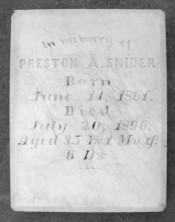 In memory of
PRESTON A. SNIDER
Born
June 14, 1861.
Died
July 20, 1896.
Aged 35 Ys 1 Mo &
6 Ds